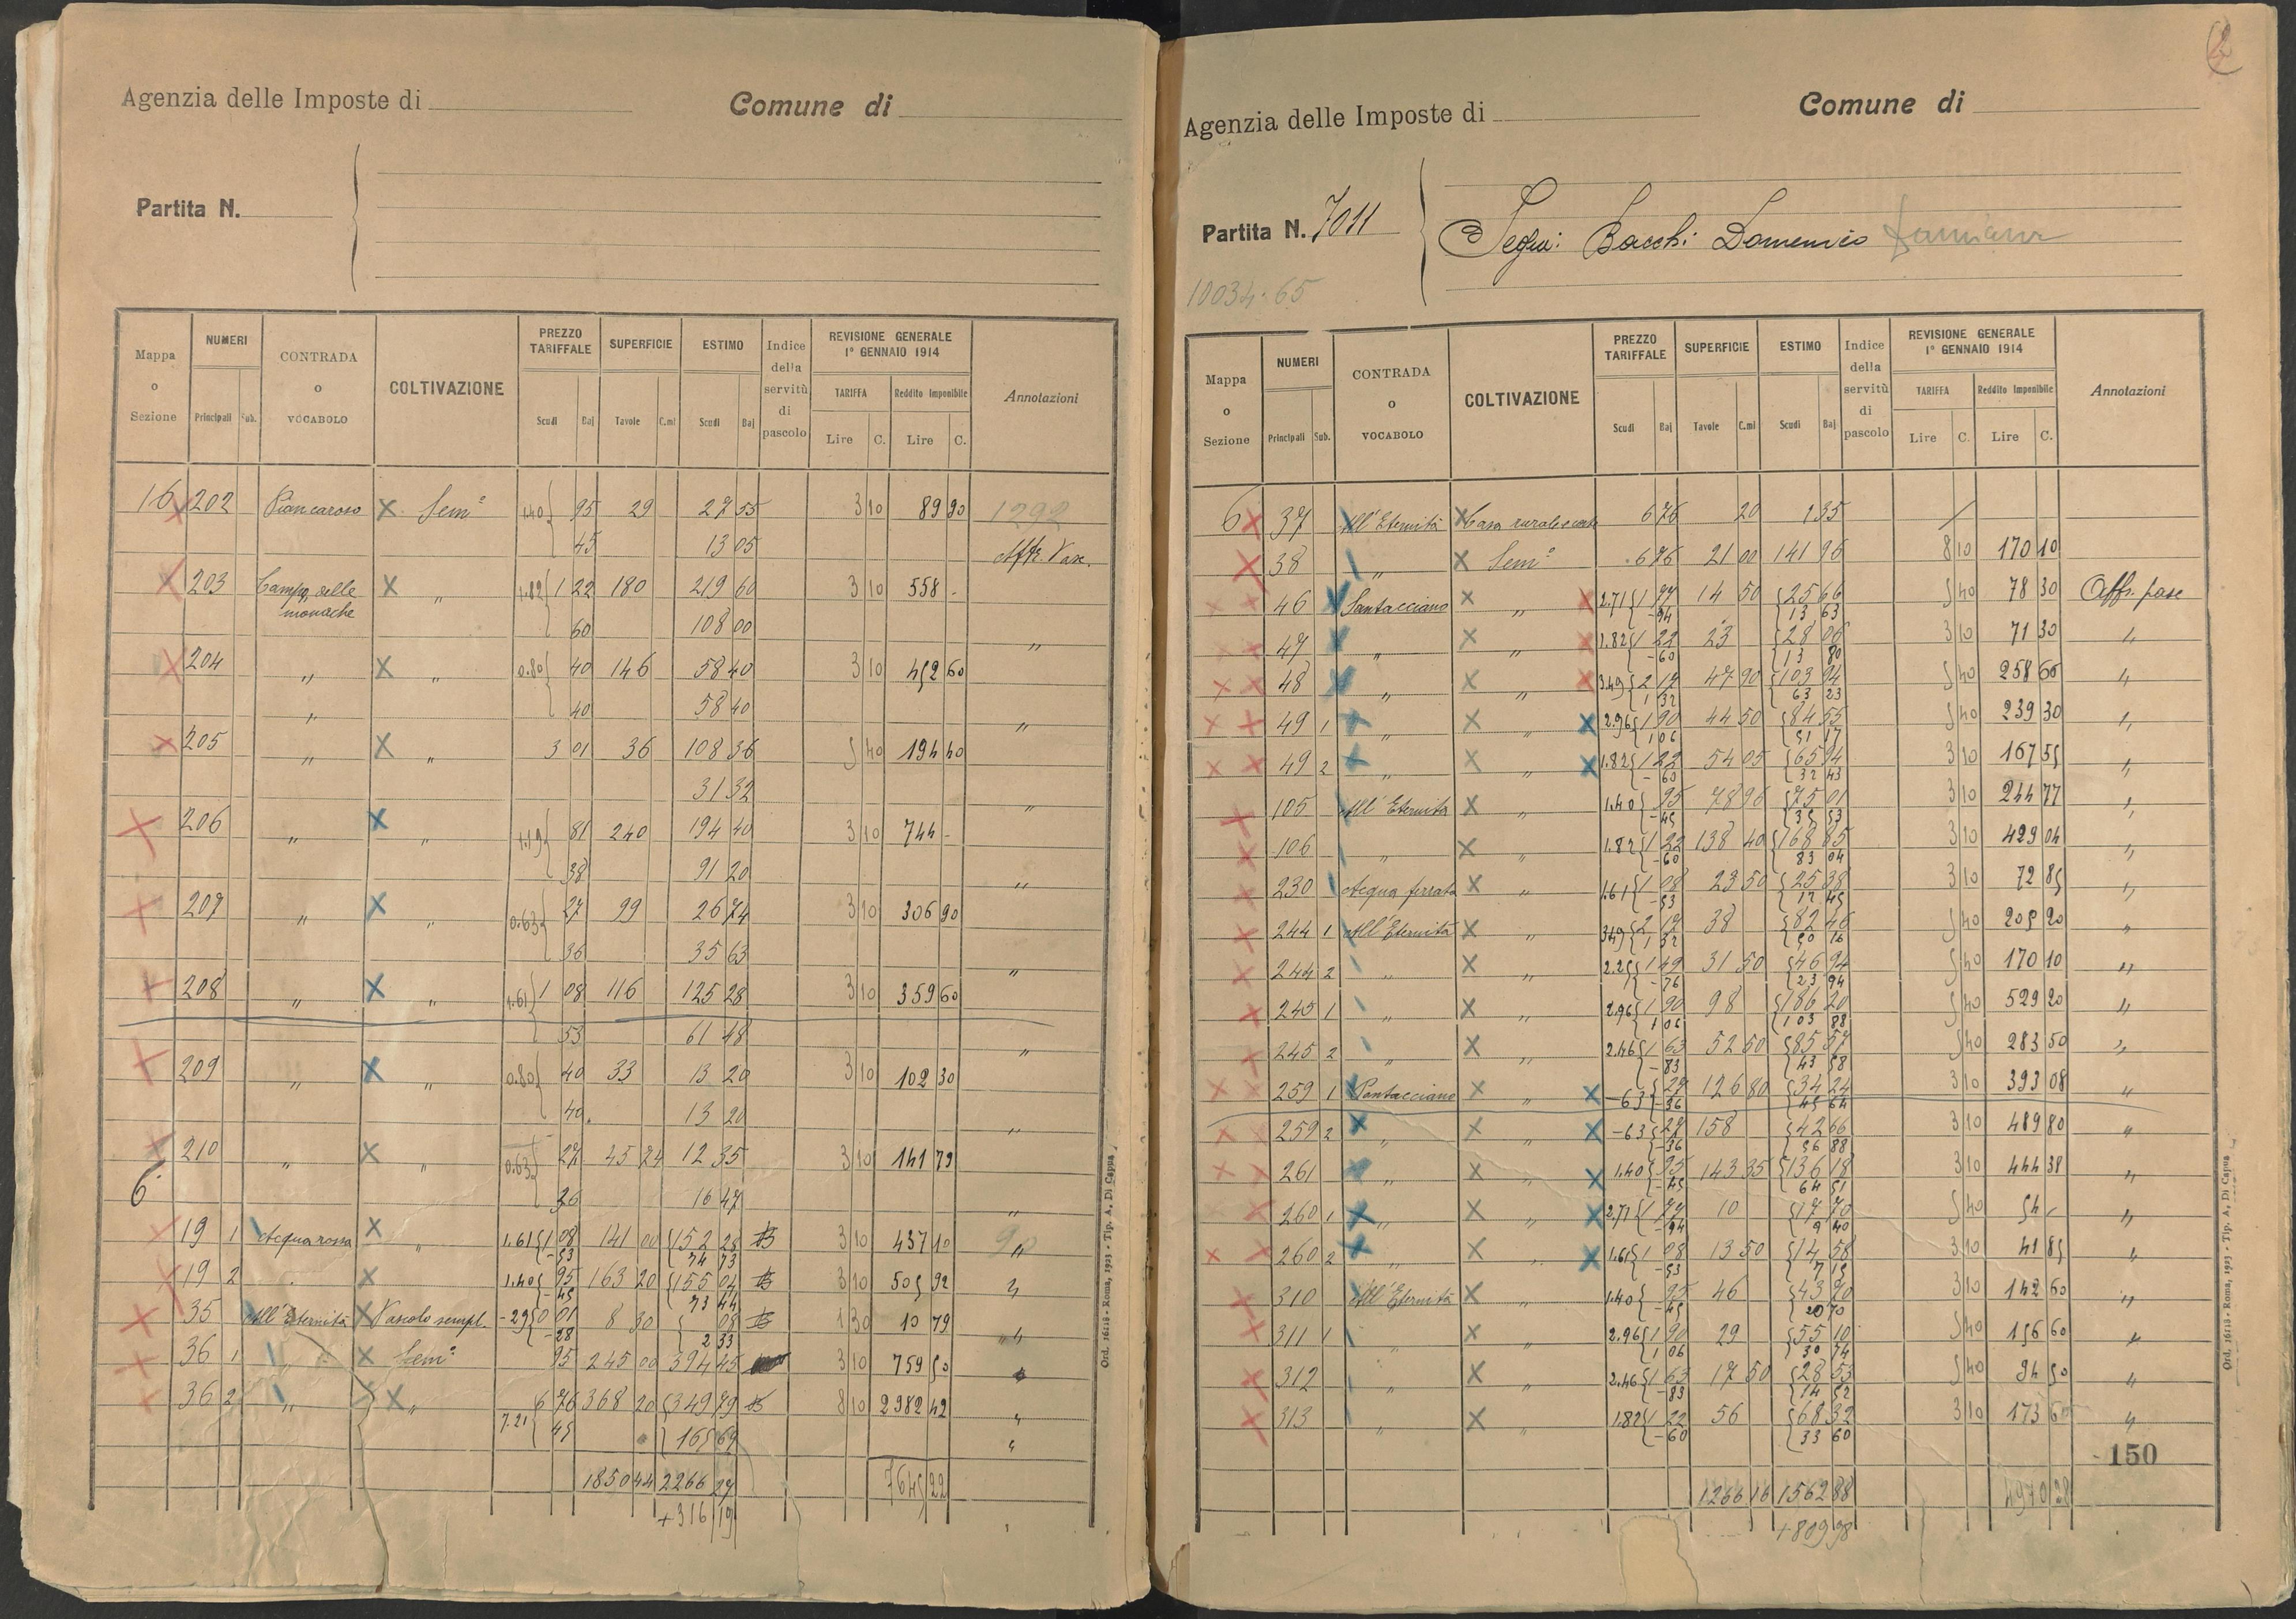 Agenzia delle Imposte di
Comune di
Partita N.
Mappa o Sezione | NUMERI Principali Sub. | CONTRADA o VOCABOLO | COLTIVAZIONE | PREZZO TARIFFALE Scudi Baj | SUPERFICIE Tavole C.mi | ESTIMO Scudi Baj | Indice della servitù di pascolo | REVISIONE GENERALE 1° GENNAIO 1914 TARIFFA Lire C. Reddito Imponibile Lire C. | Annotazioni
16 202 Piancaroso X Sem.e 1.40 { 95 29 27 55 3 10 89 90 1292
45 13 05 Affr. Pasc.
203 Campo delle monache X " 1.82 { 1 22 180 219 60 3 10 558 -
60 108 00 "
204 " X " 0.80 { 40 146 58 40 3 10 452 60
" 40 58 40 "
205 " X " 3 01 36 108 36 5 40 194 40
31 32 "
206 " X " 1.19 { 81 240 194 40 3 10 744 -
38 91 20 "
207 " X " 0.63 { 27 99 26 74 3 10 306 90
36 35 63 "
208 " X " 1.61 { 1 08 116 125 28 3 10 359 60
53 61 48 "
209 " X " 0.80 { 40 33 13 20 3 10 102 30
40 13 20 "
210 " X " 0.63 { 27 45 24 12 35 3 10 141 79
36 16 47 "
6
19 1 Acqua rossa X " 1.61 { 1 08 141 00 { 152 28 3 10 437 10 "
- 53 74 73
19 2 X 1.40 { 95 163 20 { 155 04 3 10 505 92 "
- 45 73 44
35 All'Eternità X Pascolo sempl. - 29 { 0 01 8 30 { 08 1 30 10 79 "
- 28 2 33
36 1 " X Sem.e 95 245 00 394 45 3 10 759 50
36 2 " X " 7.21 { 6 76 368 20 { 349 79 8 10 2982 42 "
45 165 69 "
1850 44 2266 27 7645 22
+ 316 19
Ord. 16118 - Roma, 1923 - Tip. A. Di Capua
2
Agenzia delle Imposte di
Comune di
Partita N. 7011
Segui: Bacchi Domenico
10034.65
Mappa o Sezione | NUMERI Principali Sub. | CONTRADA o VOCABOLO | COLTIVAZIONE | PREZZO TARIFFALE Scudi Baj | SUPERFICIE Tavole C.mi | ESTIMO Scudi Baj | Indice della servitù di pascolo | REVISIONE GENERALE 1° GENNAIO 1914 TARIFFA Lire C. Reddito Imponibile Lire C. | Annotazioni
6 X 37 All'Eternità X Casa rurale e corte 6 76 20 1 35 /
X 38 " X Sem.e 6 76 21 00 141 96 8 10 170 10
X X 46 X Santacciano X " X 2.71 { 1 77 14 50 { 25 66 5 40 78 30 Affr. pasc
- 94 13 63
47 X " X " X 1.82 { 1 22 23 { 28 06 3 10 71 30 "
- 60 13 80
X X 48 X " X " X 3.49 { 2 17 47 90 { 103 94 5 40 258 66 "
1 32 63 23
X X 49 1 X " X " X 2.96 { 1 90 44 50 { 84 55 5 40 239 30 "
1 06 51 17
X X 49 2 X " X " X 1.82 { 1 22 54 05 { 65 94 3 10 167 55 "
- 60 32 43
X 105 All'Eternità X 1.40 { 95 78 96 { 75 01 3 10 244 77 "
- 45 35 53
X 106 " X " 1.82 { 1 22 138 40 { 168 85 3 10 429 04 "
- 60 83 04
X 230 Acqua ferrata X " 1.61 { 1 08 23 50 { 25 38 3 10 72 85 "
- 53 12 45
X 244 1 All'Eternità X " 3.49 { 2 17 38 { 82 46 5 40 205 20 "
1 32 50 16
X 244 2 " X " 2.25 { 1 49 31 50 { 46 94 5 40 170 10 "
- 76 23 94
X 245 1 " X " 2.96 { 1 90 98 { 186 20 5 40 529 20 "
1 06 103 88
X 245 2 " X " 2.46 { 1 63 52 50 { 85 57 5 40 283 50 "
- 83 43 58
X X 259 1 X Pantacciano X " X - 63 { 27 126 80 { 34 24 3 10 393 08 "
- 36 45 64
X X 259 2 X " X " X - 63 { 27 158 { 42 66 3 10 489 80 "
- 36 56 88
X X 261 X " X " X 1.40 { 95 143 35 { 136 18 3 10 444 38 "
- 45 64 51
X 260 1 X " X " X 2.71 { 1 77 10 { 17 70 5 40 54 - "
- 94 9 40
X X 260 2 X " X " X 1.61 { 1 08 13 50 { 14 58 3 10 41 85 "
- 53 7 15
X 310 All'Eternità X " 1.40 { 95 46 { 43 70 3 10 142 60 "
- 45 20 70
X 311 1 " X " 2.96 { 1 90 29 { 55 10 5 40 156 60 "
1 06 30 74
X 312 " X " 2.46 { 1 63 17 50 { 28 53 5 40 94 50 "
- 83 14 52
X 313 " X " 1.82 { 1 22 56 { 68 32 3 10 173 60 "
- 60 33 60
150
1266 16 1562 88 4970 28
+ 809 98
Ord. 16118 - Roma, 1923 - Tip. A. Di Capua